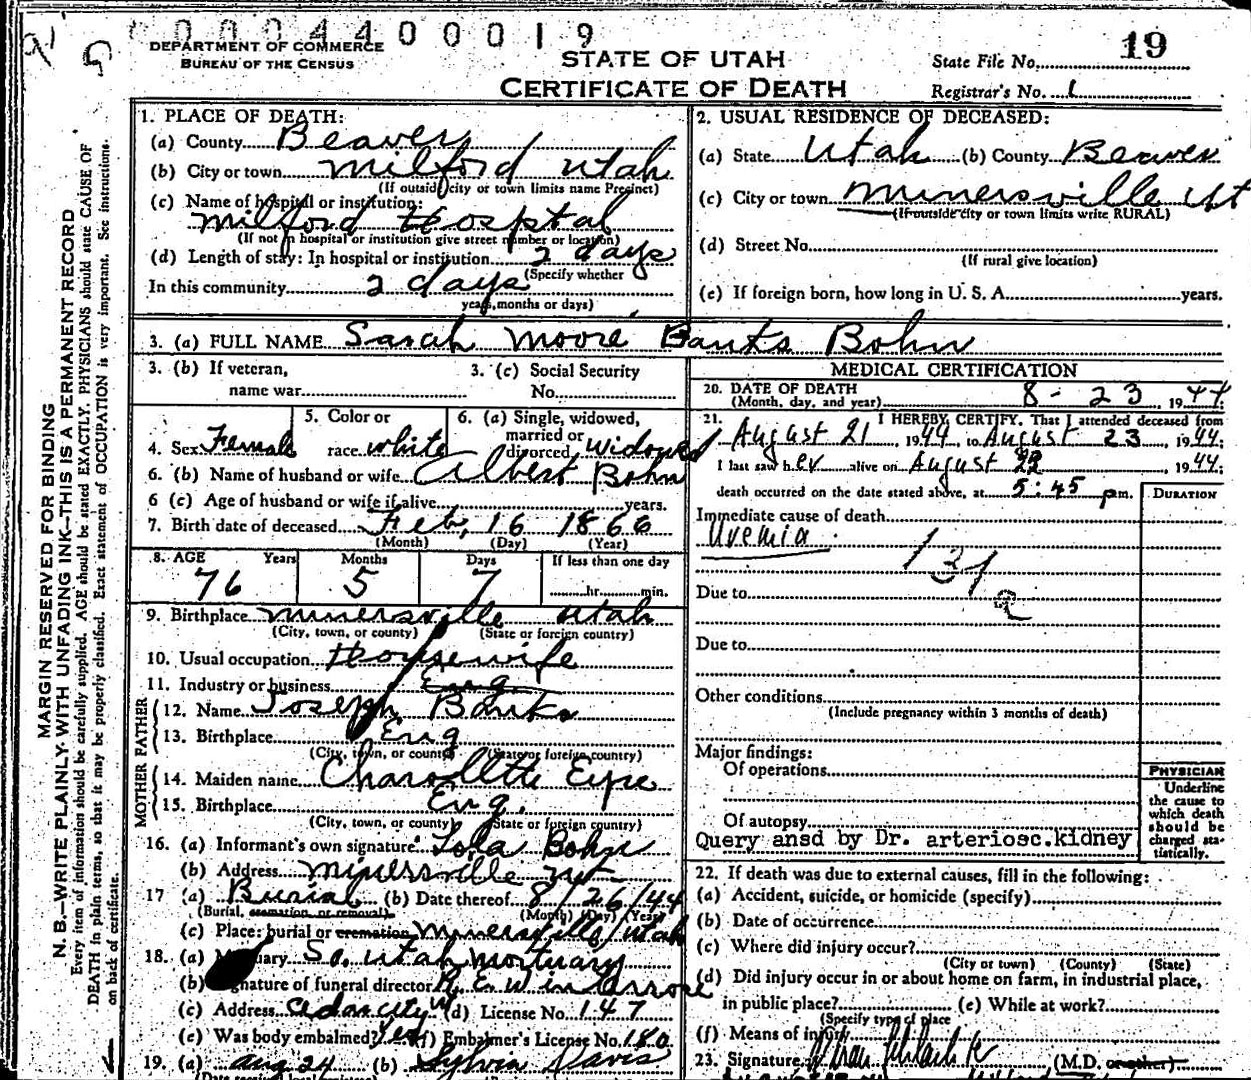 0004400019
DEPARTMENT OF COMMERCE
BUREAU OF THE CENSUS
STATE OF UTAH
CERTIFICATE OF DEATH
19
State File No.
Registrar's No. 1
MARGIN RESERVED FOR BINDING
N. B.—WRITE PLAINLY WITH UNFADING INK—THIS IS A PERMANENT RECORD
Every item of information should be carefully supplied. AGE should be stated EXACTLY. PHYSICIANS should state CAUSE OF
DEATH in plain terms, so that it may be properly classified. Exact statement of OCCUPATION is very important. See instructions
on back of certificate.
1. PLACE OF DEATH:
(a) County Beaver
(b) City or town Milford Utah
(If outside city or town limits name Precinct)
(c) Name of hospital or institution:
Milford Hosptal
(If not in hospital or institution give street number or location)
(d) Length of stay: In hospital or institution 2 days
(Specify whether
In this community 2 days
years, months or days)
2. USUAL RESIDENCE OF DECEASED:
(a) State Utah (b) County Beaver
(c) City or town Minersville Ut
(If outside city or town limits write RURAL)
(d) Street No.
(If rural give location)
(e) If foreign born, how long in U. S. A. years.
3. (a) FULL NAME Sarah Moore Banks Bohn
3. (b) If veteran,
name war
3. (c) Social Security
No.
4. Sex Female
5. Color or
race white
6. (a) Single, widowed,
married or
divorced widowed
6. (b) Name of husband or wife Albert Bohn
6 (c) Age of husband or wife if alive years.
7. Birth date of deceased Feb. 16 1866
(Month) (Day) (Year)
8. AGE Years Months Days If less than one day
76 5 7 hr. min.
9. Birthplace Minersville Utah
(City, town, or county) (State or foreign country)
10. Usual occupation Housewife
11. Industry or business Eng.
FATHER
12. Name Joseph Banks
13. Birthplace Eng
(City, town, or county) (State or foreign country)
MOTHER
14. Maiden name Charollette Eyre
15. Birthplace Eng.
(City, town, or county) (State or foreign country)
16. (a) Informant's own signature Lola Bohn
(b) Address Minersville Ut
17 (a) Burial (b) Date thereof 8/26/44
(Burial, cremation, or removal) (Month) (Day) (Year)
(c) Place: burial or cremation Minersville, Utah
18. (a) So. Utah Mortuary
(b) Signature of funeral director
(c) Address (d) License No. 147
(e) Was body embalmed? Yes (f) Embalmer's License No. 180
19. (a) Aug 24 (b) Sylvia Davis
MEDICAL CERTIFICATION
20. DATE OF DEATH
(Month, day, and year) 8-23, 1944
21. I HEREBY CERTIFY, That I attended deceased from
August 21, 1944, to August 23, 1944:
I last saw her alive on August, 1944:
death occurred on the date stated above, at 5:45 pm.
DURATION
Immediate cause of death
Uremia
131
a
Due to
Due to
Other conditions
(Include pregnancy within 3 months of death)
Major findings:
Of operations
Of autopsy
Query ansd by Dr. arteriosc.kidney
PHYSICIAN
Underline
the cause to
which death
should be
charged sta-
tistically.
22. If death was due to external causes, fill in the following:
(a) Accident, suicide, or homicide (specify)
(b) Date of occurrence
(c) Where did injury occur?
(City or town) (County) (State)
(d) Did injury occur in or about home on farm, in industrial place,
in public place? (e) While at work?
(Specify type of place
(f) Means of injury
23. Signature (M.D. or other)